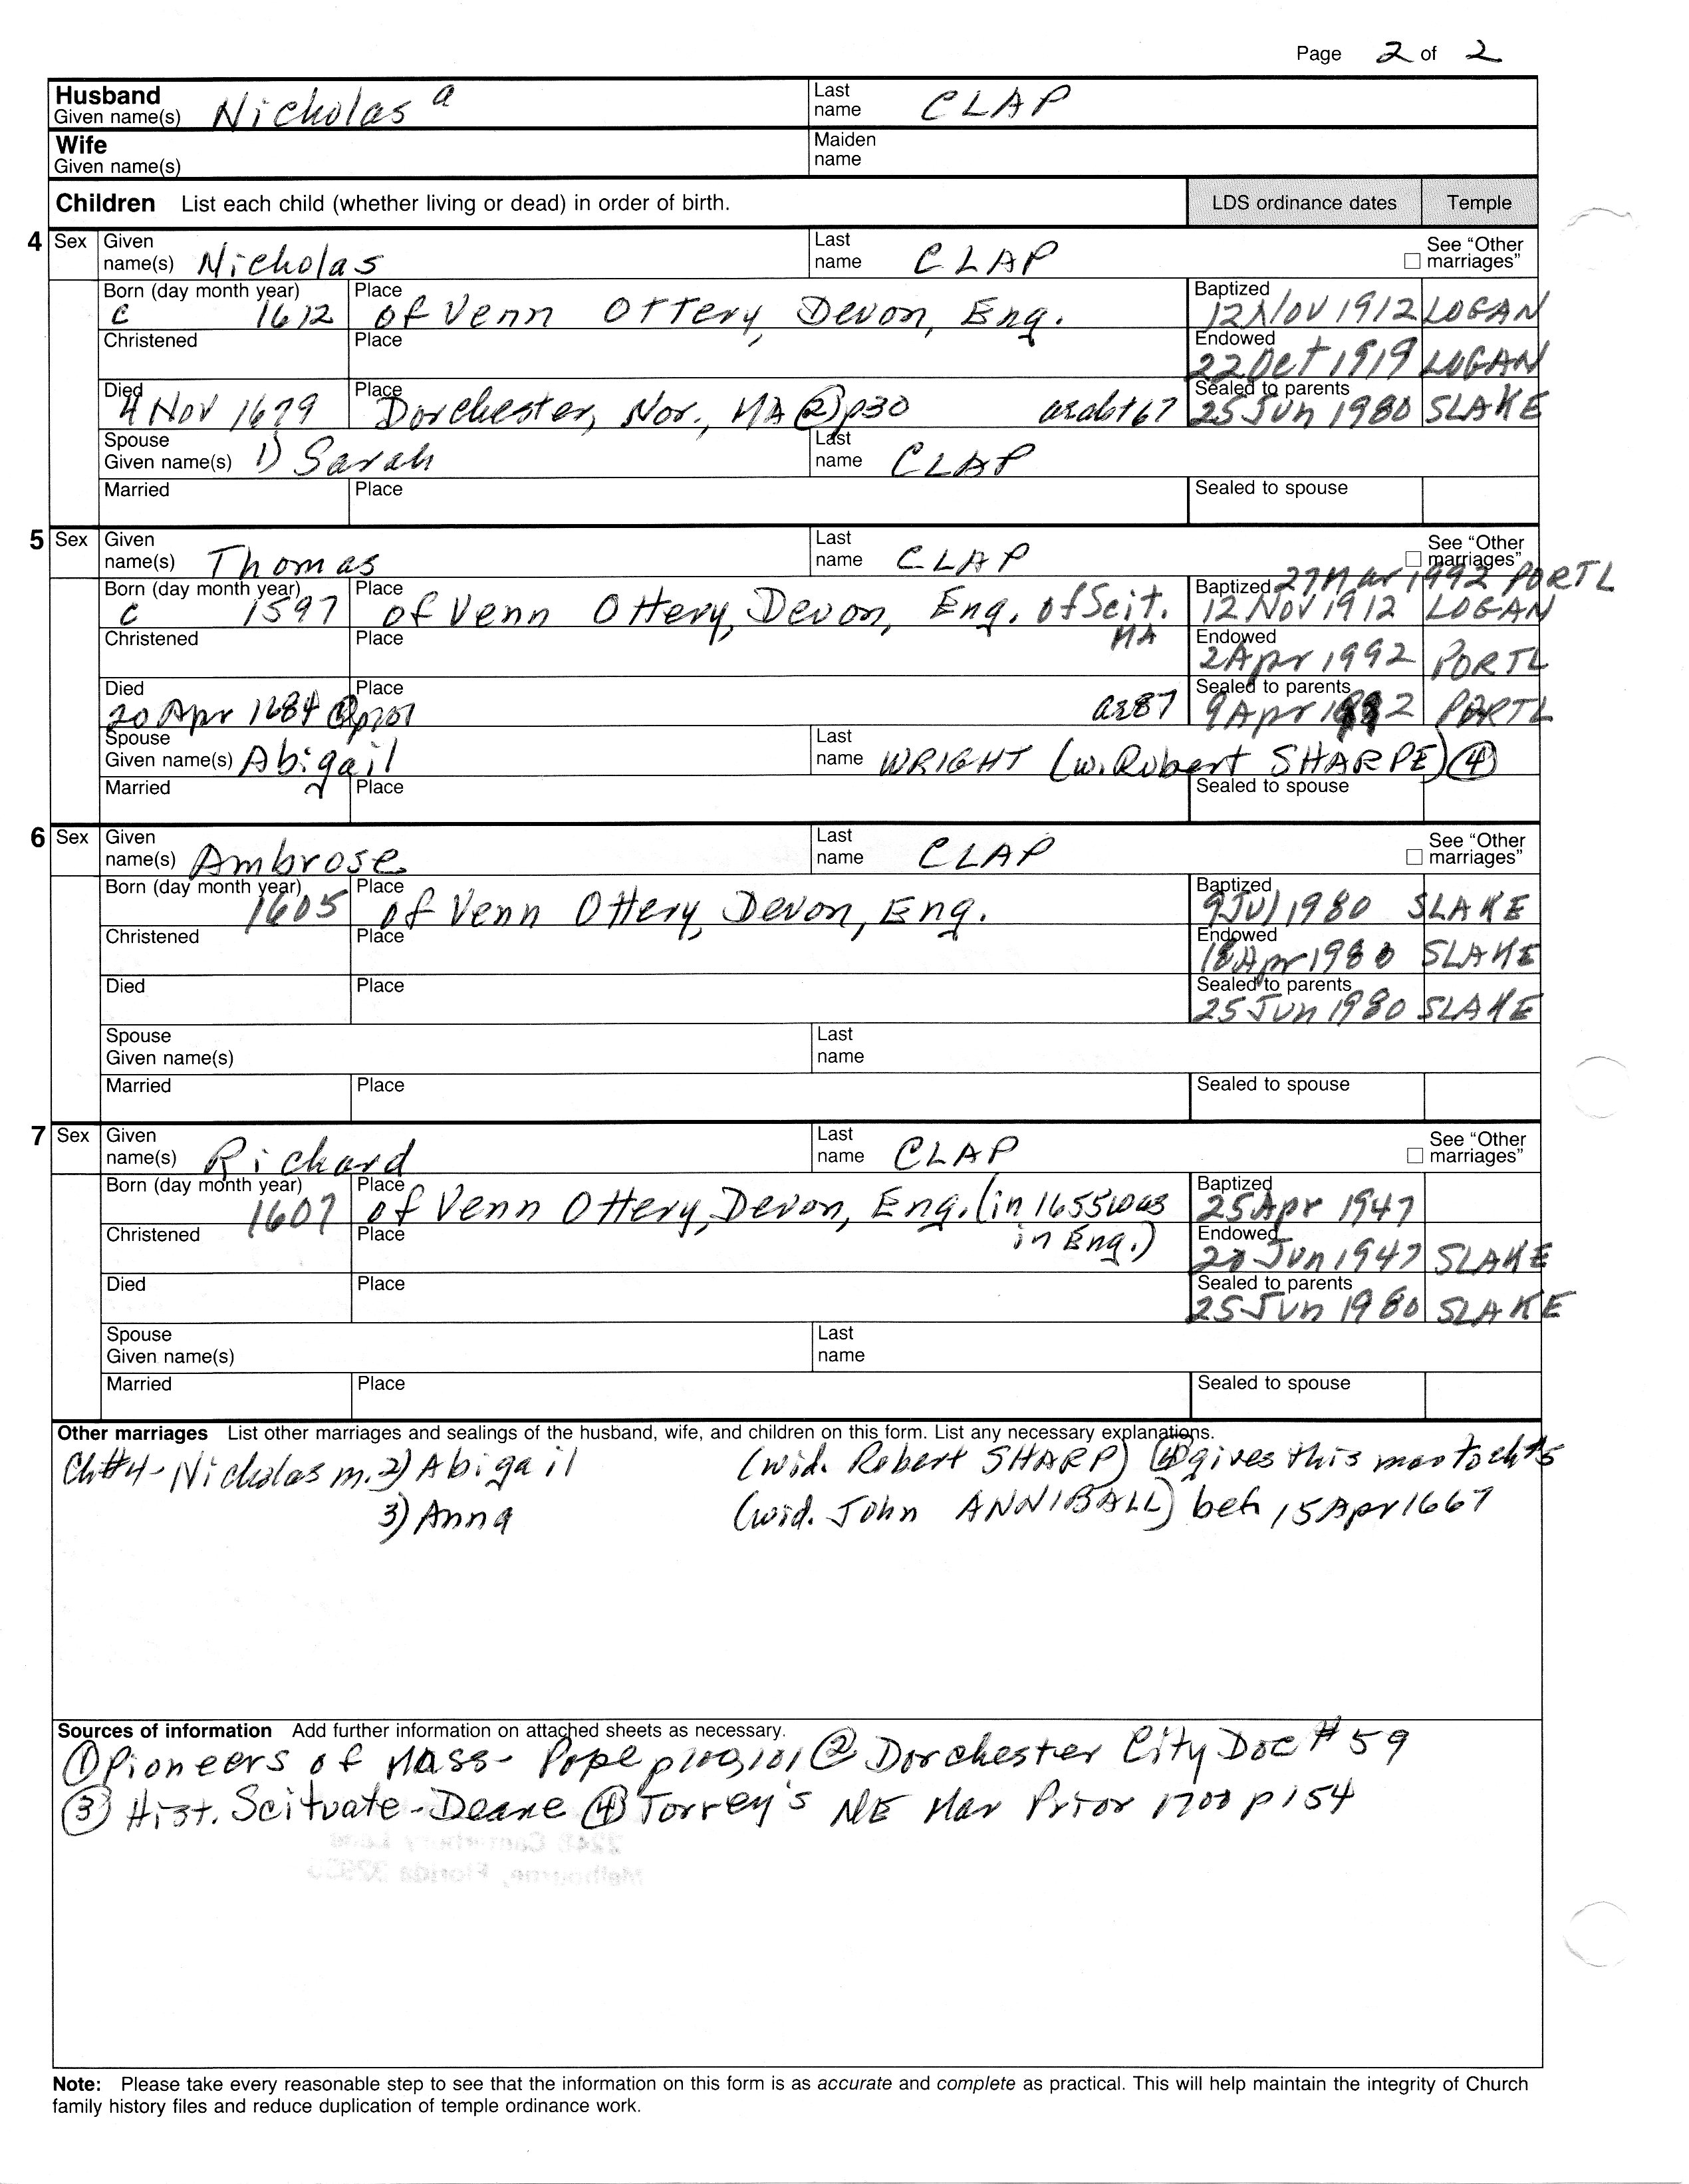 Page 2 of 2
Husband Given name(s) Nicholas a Last name CLAP
Wife Given name(s) Maiden name
Children List each child (whether living or dead) in order of birth. LDS ordinance dates Temple
4 Sex Given name(s) Nicholas Last name CLAP See "Other marriages"
Born (day month year) c 1612 Place of Venn Ottery, Devon, Eng. Baptized 12 Nov 1912 LOGAN
Christened Place Endowed 22 Oct 1919 LOGAN
Died 4 Nov 1679 Place Dorchester, Nor., MA (2) p30 67 Sealed to parents 25 Jun 1980 SLAKE
Spouse Given name(s) 1) Sarah Last name CLAP
Married Place Sealed to spouse
5 Sex Given name(s) Thomas Last name CLAP See "Other marriages"
27 Mar 1992 PORTL
Born (day month year) c 1597 Place of Venn Ottery, Devon, Eng. of Scit. MA Baptized 12 Nov 1912 LOGAN
Christened Place Endowed 2 Apr 1992 PORTL
Died 20 Apr 1684 Place a287 Sealed to parents 9 Apr 1992 PORTL
Spouse Given name(s) Abigail Last name WRIGHT (w. Robert SHARPE) (4)
Married Place Sealed to spouse
6 Sex Given name(s) Ambrose Last name CLAP See "Other marriages"
Born (day month year) 1605 Place of Venn Ottery, Devon, Eng. Baptized 9 Jul 1980 SLAKE
Christened Place Endowed 18 Apr 1980 SLAKE
Died Place Sealed to parents 25 Jun 1980 SLAKE
Spouse Given name(s) Last name
Married Place Sealed to spouse
7 Sex Given name(s) Richard Last name CLAP See "Other marriages"
Born (day month year) 1607 Place of Venn Ottery, Devon, Eng. (in 1655 was in Eng.) Baptized 25 Apr 1947
Christened Place Endowed 20 Jun 1947 SLAKE
Died Place Sealed to parents 25 Jun 1980 SLAKE
Spouse Given name(s) Last name
Married Place Sealed to spouse
Other marriages List other marriages and sealings of the husband, wife, and children on this form. List any necessary explanations.
Ch#4 - Nicholas m. 2) Abigail (wid. Robert SHARP) (4) gives this mar to ch #5
3) Anna (wid. John ANNIBALL) bef 15 Apr 1667
Sources of information Add further information on attached sheets as necessary.
(1) Pioneers of Mass - Pope p100,101 (2) Dorchester City Doc # 59
(3) Hist. Scituate - Deane (4) Torrey's NE Mar Prior 1700 p154
Note: Please take every reasonable step to see that the information on this form is as accurate and complete as practical. This will help maintain the integrity of Church
family history files and reduce duplication of temple ordinance work.